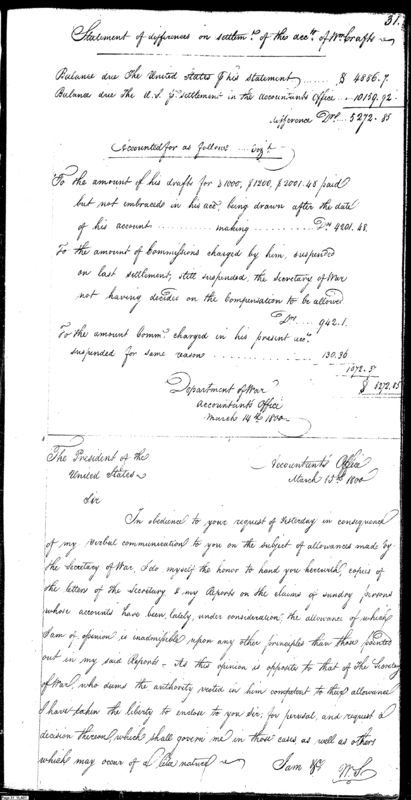 31.
Statement of differences on settlem.t of the acc.t of Wm Crafts
Balance due The United States p his statement ........ $ 4886.7.
Balance due The U.S. p settlement in the Accountants Office ... 10159.92
difference Drs... 5272.85
Accounted for as follows .... Viz.t
To the amount of his drafts for $1000, $1200, $2001.48 paid
but not embraced in his acc.t, being drawn after the date
of his account ............ making ............ Drs 4201.48.
To the amount of Commissions charged by him, suspended
on last settlement, still suspended, the Secretary of War
not having decided on the Compensation to be allowed
Drs... 942.1.
To the amount Comm.s charged in his present acc.t
suspended for same reason .............. 130.36
1072.37
$ 5272.85
Department of War
Accountants Office
March 14th 1800
The President of the
United States
Accountants Office
March 15th 1800
Sir
In obedience to your request of Yesterday in consequence
of my verbal communication to you on the subject of allowances made by
the Secretary of War, I do myself the honor to hand you herewith, copies of
the letters of the Secretary, & my Reports on the claims of sundry persons
whose accounts have been, lately, under consideration, the allowance of which
I am of opinion is inadmissible upon any other principles than those pointed
out in my said Reports - As this opinion is opposite to that of The Secretary
of War, who deems the authority vested in him competent to their allowance
I have taken the liberty to enclose to you Sir, for perusal, and request a
decision thereon, which shall govern me in those cases, as well as others
which may occur of a like nature
I am &c.
W. S.